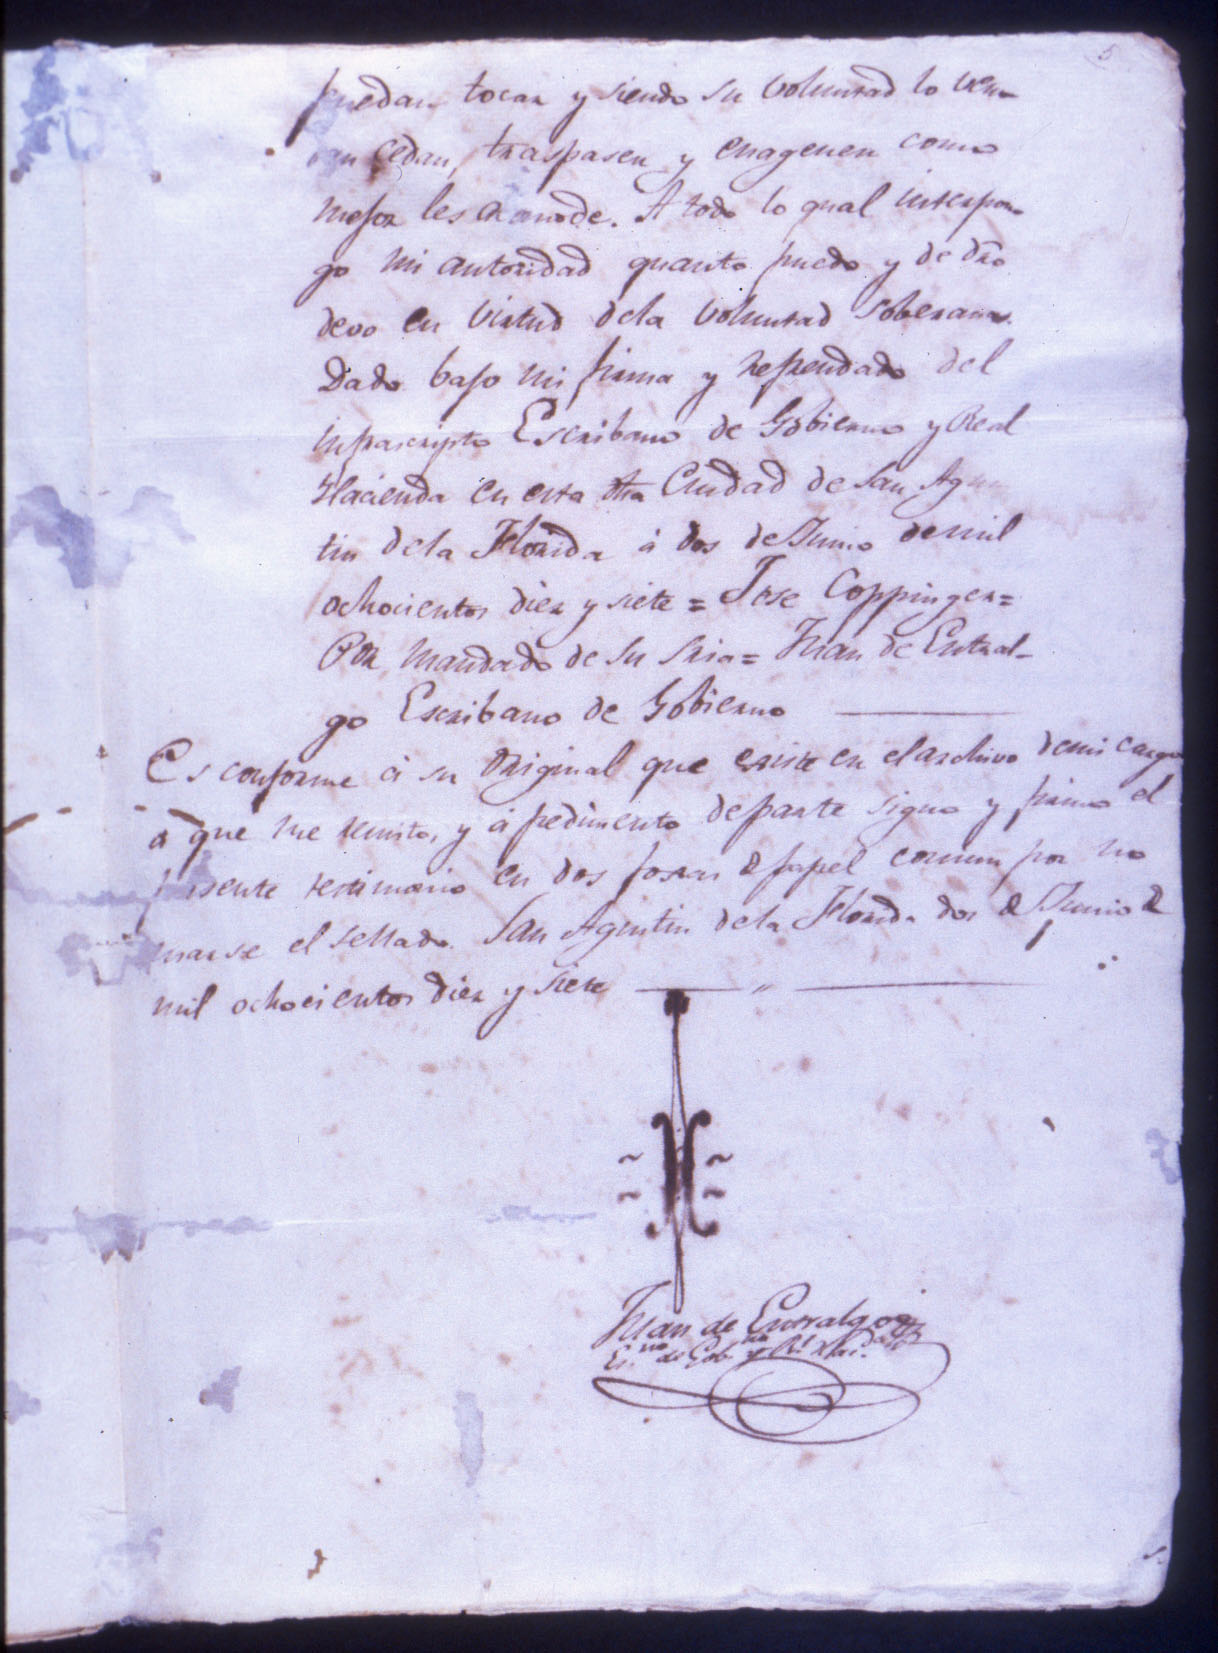 5
puedan tocar y siendo su voluntad lo ven-
dan cedan, traspasen y enagenen como
mejor les acomode. A todo lo qual interpon-
go mi autoridad quanto puedo y de dro
devo en virtud dela voluntad Soberana.
Dado bajo mi firma y refrendado del
infrascripto Escribano de Gobierno y Real
Hacienda en esta dha Ciudad de San Agus
tin dela Florida á dos de Junio demil
ochocientos diez y siete = Jose Coppinger=
Por mandado de su Sria= Juan de Entral-
go Escribano de Gobierno
Es conforme á su original que existe en el archivo demi cargo
a que me remito, y á pedimento departe signo y firmo el
presente testimonio en dos foxas de papel comun por no
usarse el sellado. San Agustin dela Florida dos de Junio de
mil ochocientos diez y siete
Juan de Entralgo
Es.no de Gob.no y R.l Hac.da